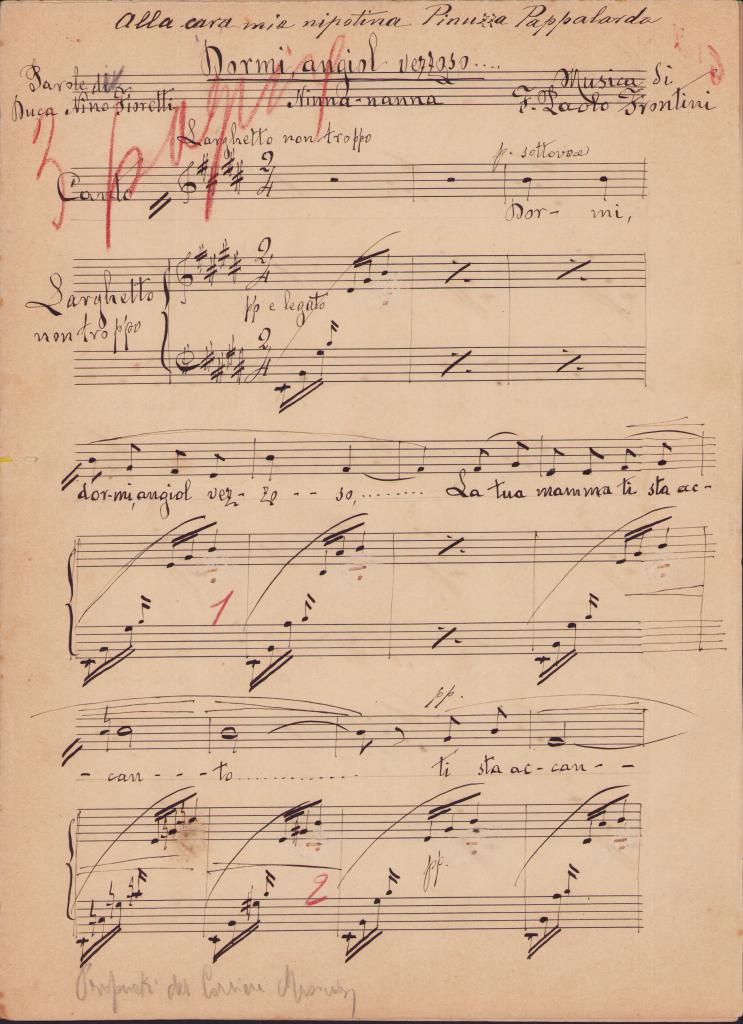 Alla cara mia nipotina Pinuzza Pappalardo
Dormi, angiol vezzoso....
Parole di
Duca Nino Fioretti
Ninna-nanna
Musica di
F. Paolo Frontini
3 pagine
Larghetto non troppo
p. sottovoce
Canto
2/4
Dor- mi,
Larghetto
non troppo
2/4
pp e legato
2/4
dor-mi, angiol vez- zo - - so,........ La tua mamma ti sta ac-
1
pp.
- can - - - to.............. ti sta ac-can - -
pp.
2
Proprietà del Corriere Musicale